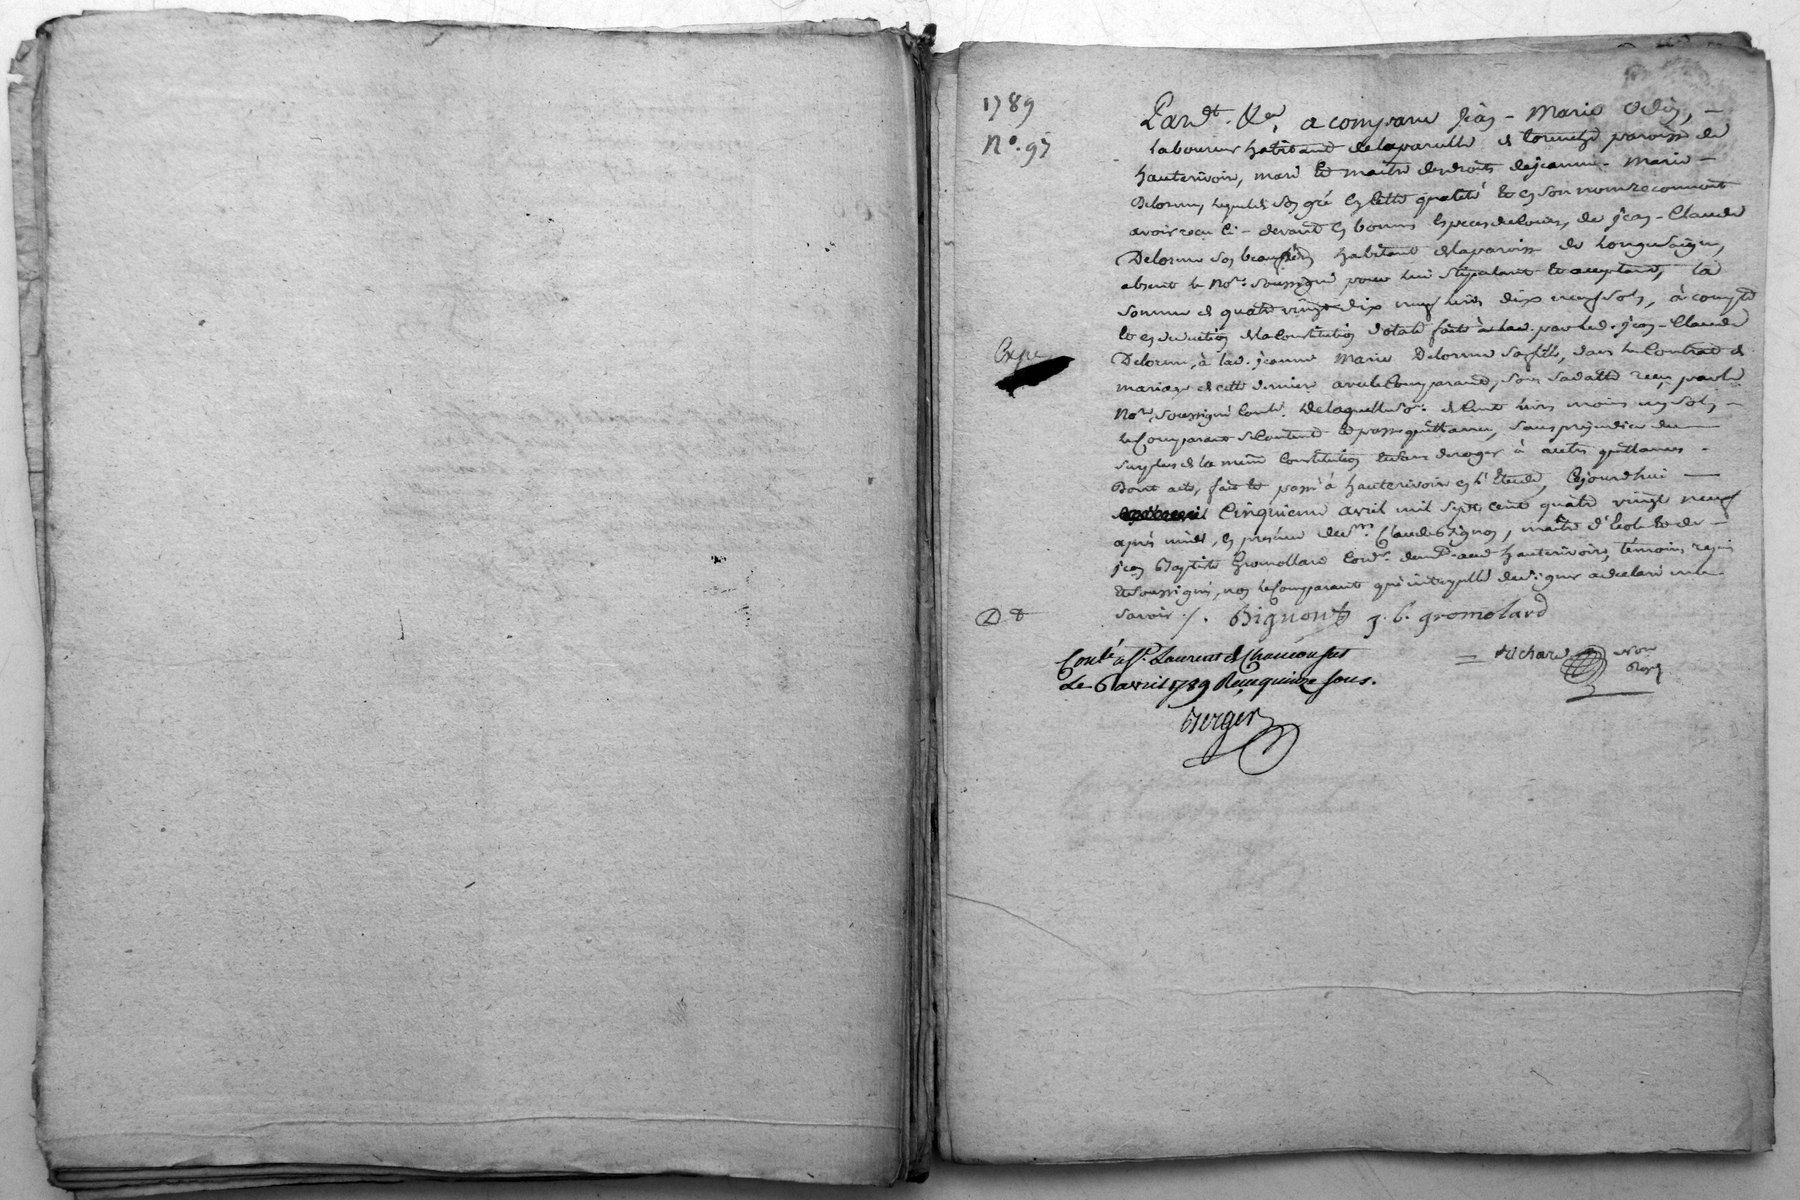 1789
N°. 97
Pardt. &a, a comparu Jean - Marie
laboureur habitant de la parcelle de paroisse de
hauterivoire, mari et maitre des droits de jeanne - Marie -
Delorme, lequel de son gré en cette qualité et en son nom reconnoit
avoir reçu ci - devant en bonnes especes de cours, de jean - Claude
Delorme son beaupere habitant de la paroisse de Longesaigne,
absent le Nore. soussigné pour lui stipulant et acceptant, la
somme de quatre vingt dix neuf livres dix neuf sols, à compte
et en deduction de la Constitution dotale faite par led. jean - Claude
Delorme, à lad. jeanne Marie Delorme sa fille, dans le Contrat de
mariage de cette derniere avec le Comparant, sous sa datte reçu par le
Nore. soussigné Conlé. De laquelle so: de Cent livres moins un sols -
le Comparant se Contente et passe quittance, sans prejudice du
surplus de la même Constitution et sans deroger à autres quittances -
Dont acte, fait et passé à hauterivoire en l'Etude, Cejourdhui
Cinquieme avril mil sept cent quatre vingt neuf
après midi, en présence de Claude Bignon, maitre d'Ecole et de -
jean Baptiste Gromollard hauterivoire, témoins requis
et soussignés, non le Comparant qui interpellé de signer a declaré ne
savoir ./. Bignon j. b. gromolard
Expé
Richard Nore
Royl
Conlé a St. Laurent de Chamousset
Le 6 avril 1789 Reçu quinze sous.
Berger